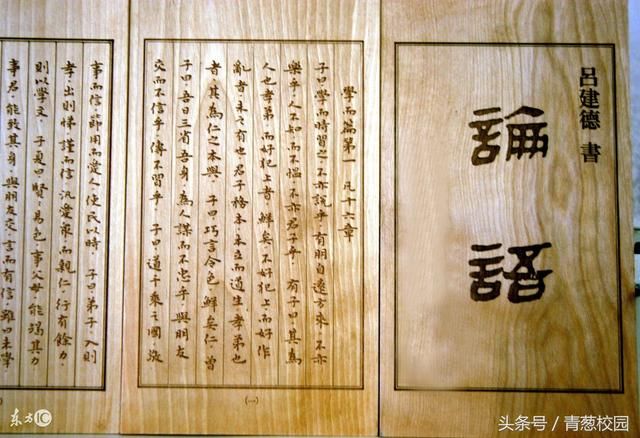 呂建德 書
論語
學而篇第一 凡十六章
子曰學而時習之不亦說乎有朋自遠方來不亦
樂乎人不知而不慍不亦君子乎有子曰其為
人也孝弟而好犯上者鮮矣不好犯上而好作
亂者未之有也君子務本本立而道生孝弟也
者其為仁之本與 子曰巧言令色鮮矣仁 曾
子曰吾日三省吾身為人謀而不忠乎與朋友
交而不信乎傳不習乎 子曰道千乘之國敬
(一)
事而信節用而愛人使民以時 子曰弟子入則
孝出則悌謹而信汎愛眾而親仁行有餘力
則以學文 子夏曰賢賢易色事父母能竭其力
事君能致其身與朋友交言而有信雖曰未學
东方IC
头条号 / 青葱校园